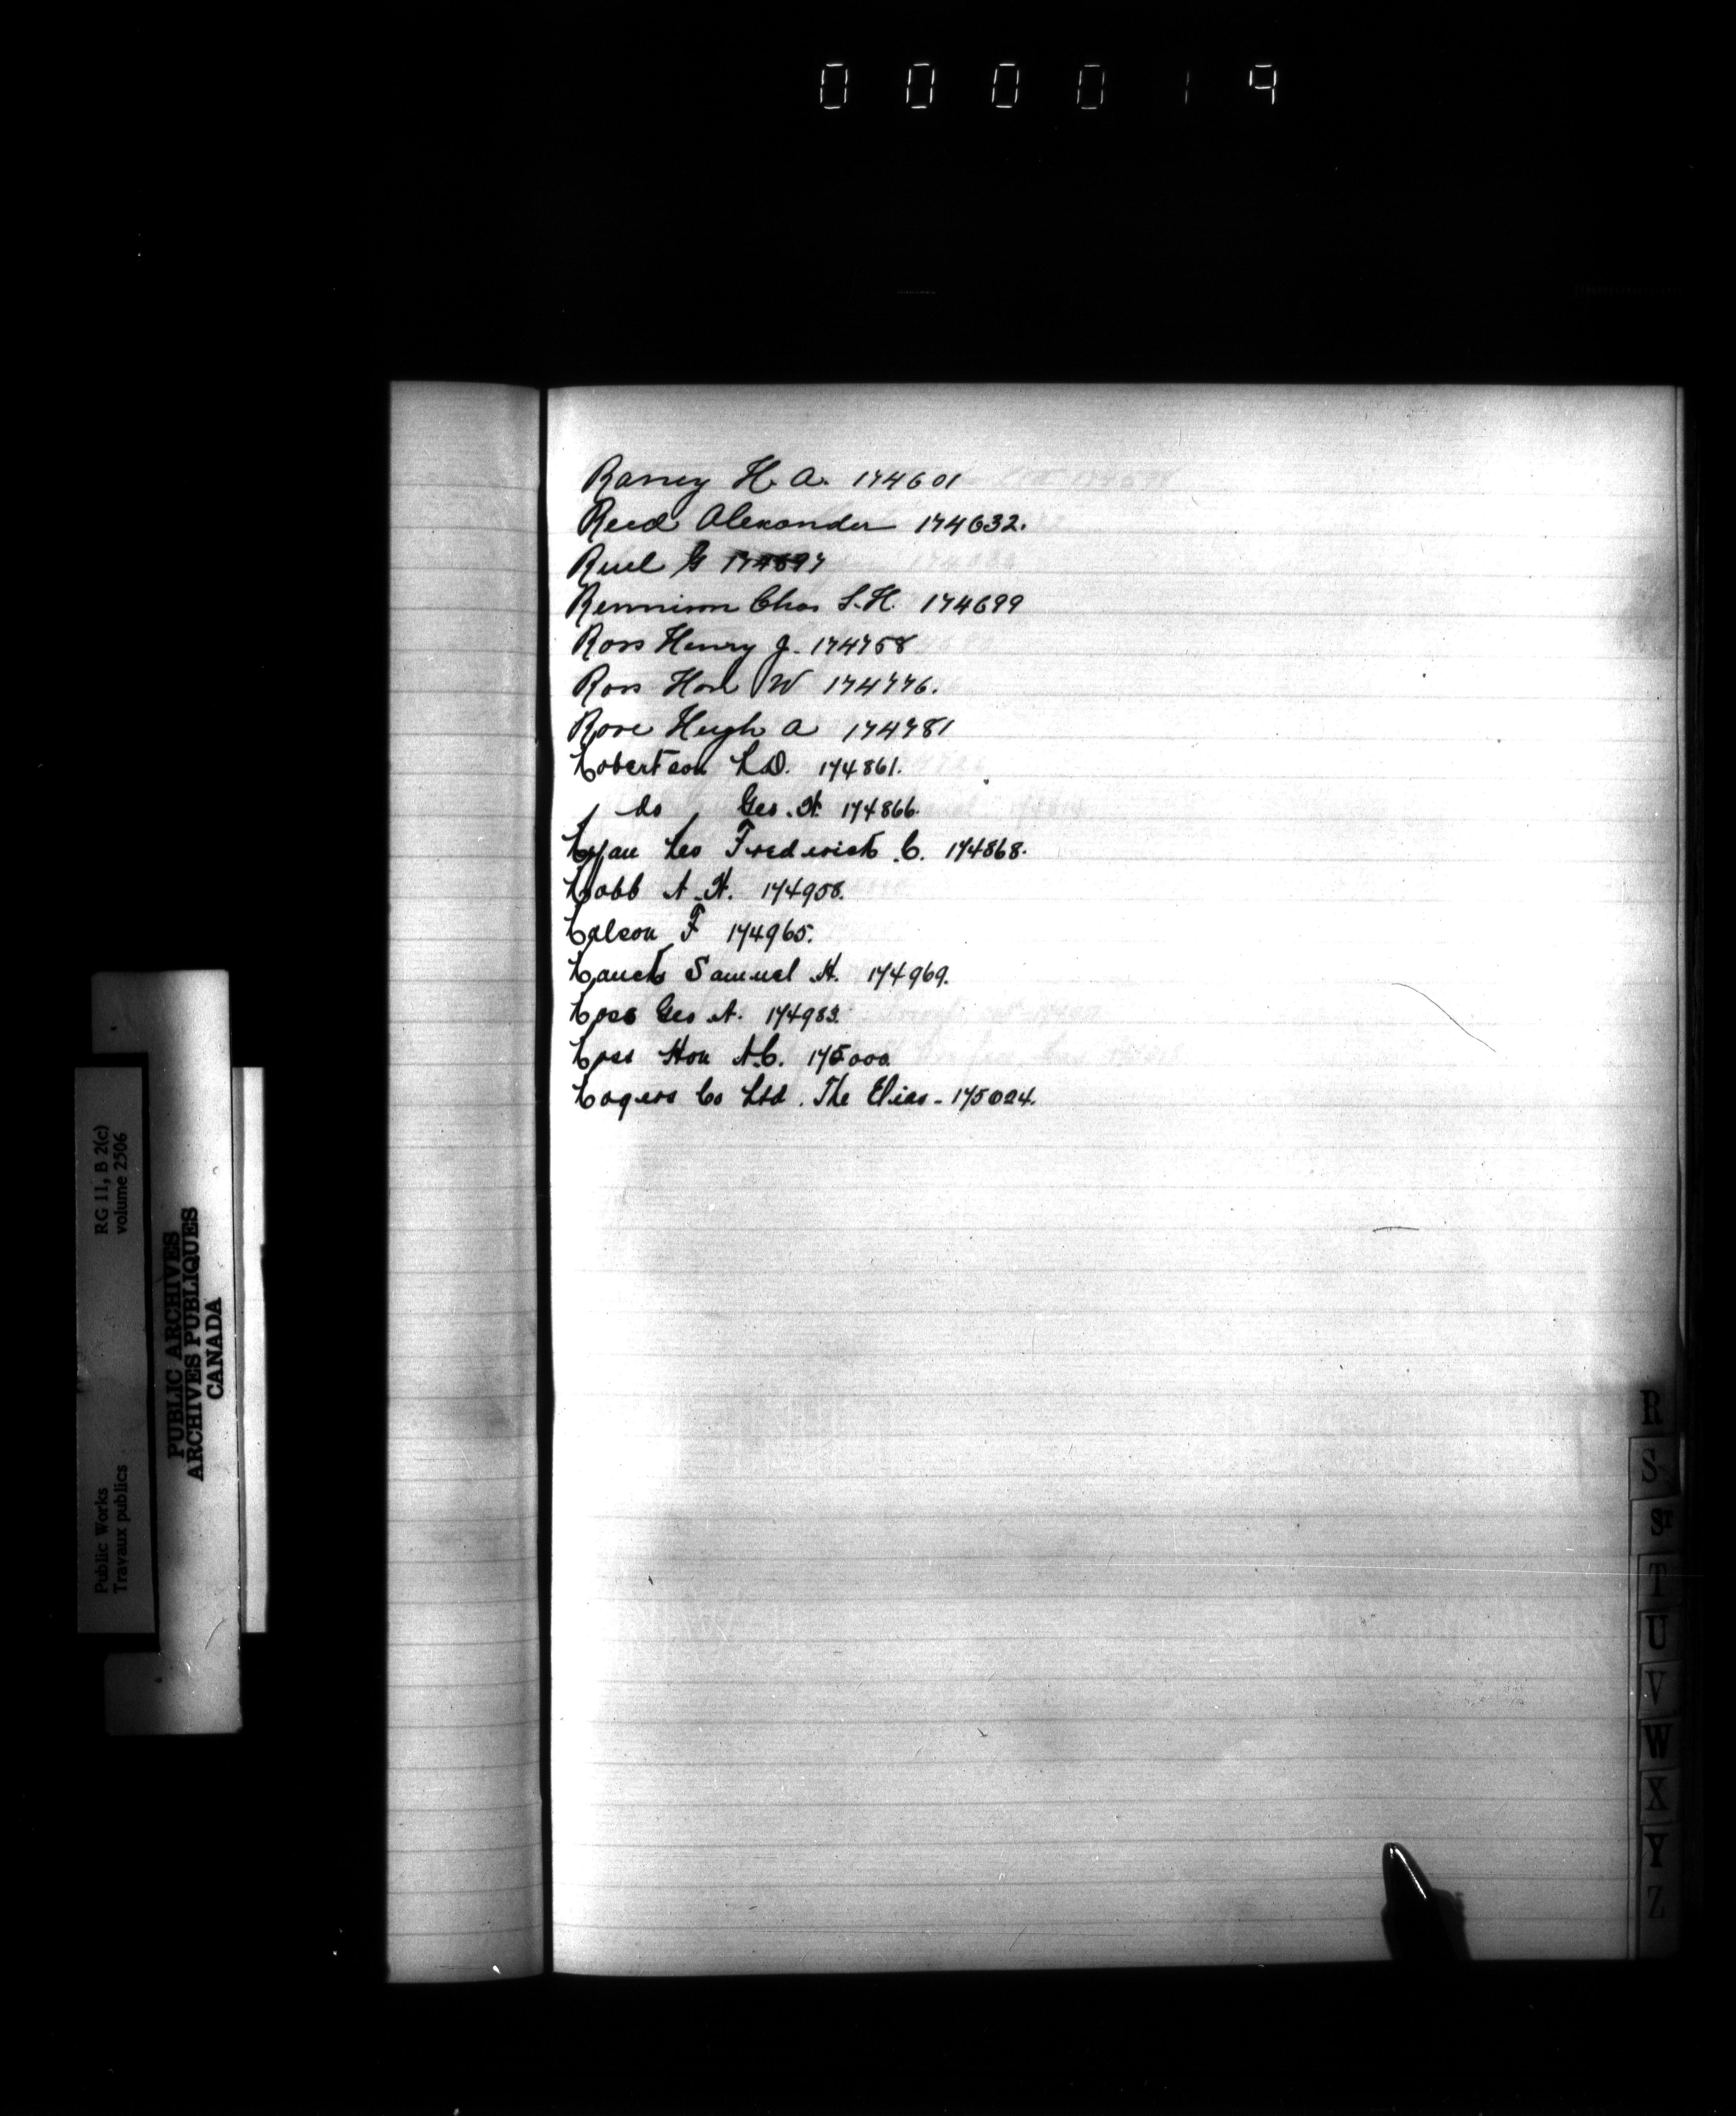 000019
Raney H. A. 174601
Reed Alexander 174632.
Ruel G 174697
Rennison Chas S. H. 174699
Ross Henry J. 174758
Ross Hon W 174776.
Rose Hugh A 174781
Robertson L.D. 174861.
do Geo. H. 174866.
Ryan Leo Frederick C. 174868.
Robb A. H. 174908.
F 174965.
Samuel A. 174969.
Ross Geo A. 174983.
Ross Hon A.C. 175000
Rogers Co Ltd. The Elias - 175024.
R
S
ST
T
U
V
W
X
Y
Z
RG 11, B 2(c)
volume 2506
Public Works
Travaux publics
PUBLIC ARCHIVES
ARCHIVES PUBLIQUES
CANADA